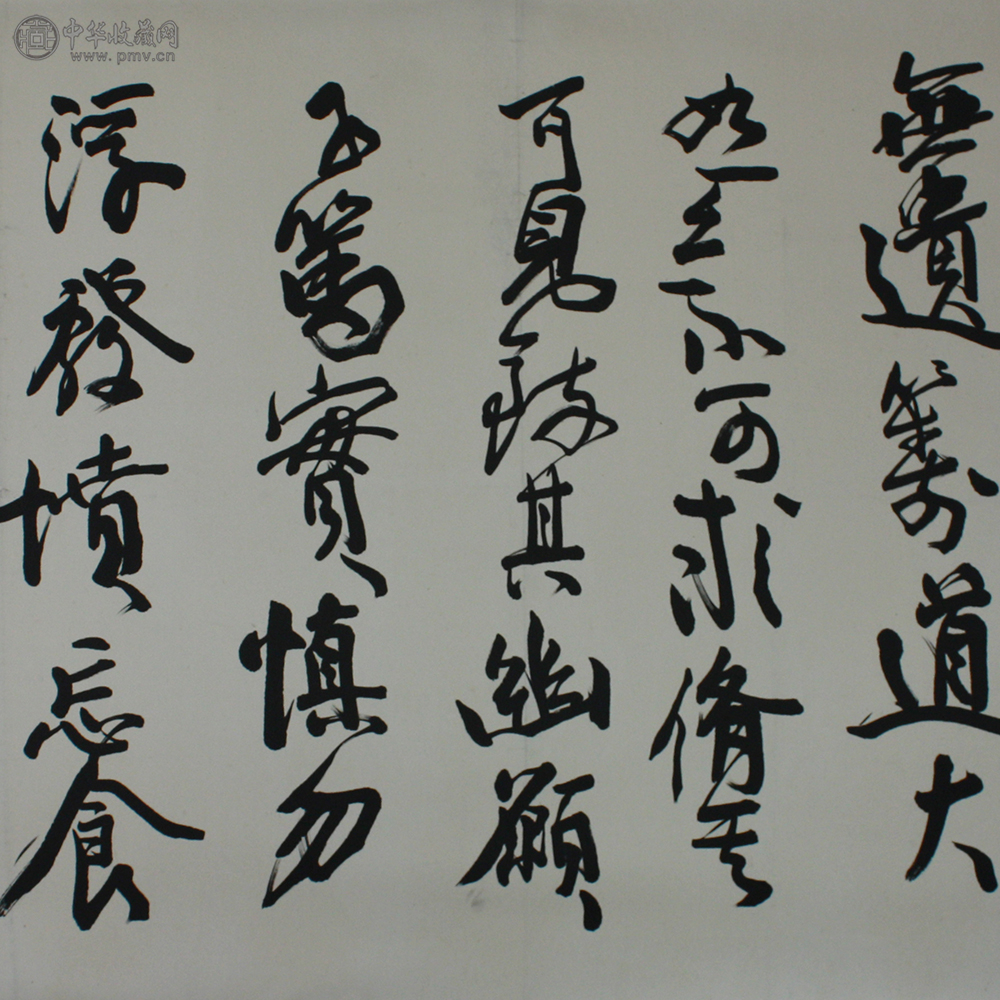 中华收藏网
www.pmv.cn
無遺籌道大
如天不可求脩其
可見致其幽願
子篤實慎勿
浮發憤忘食